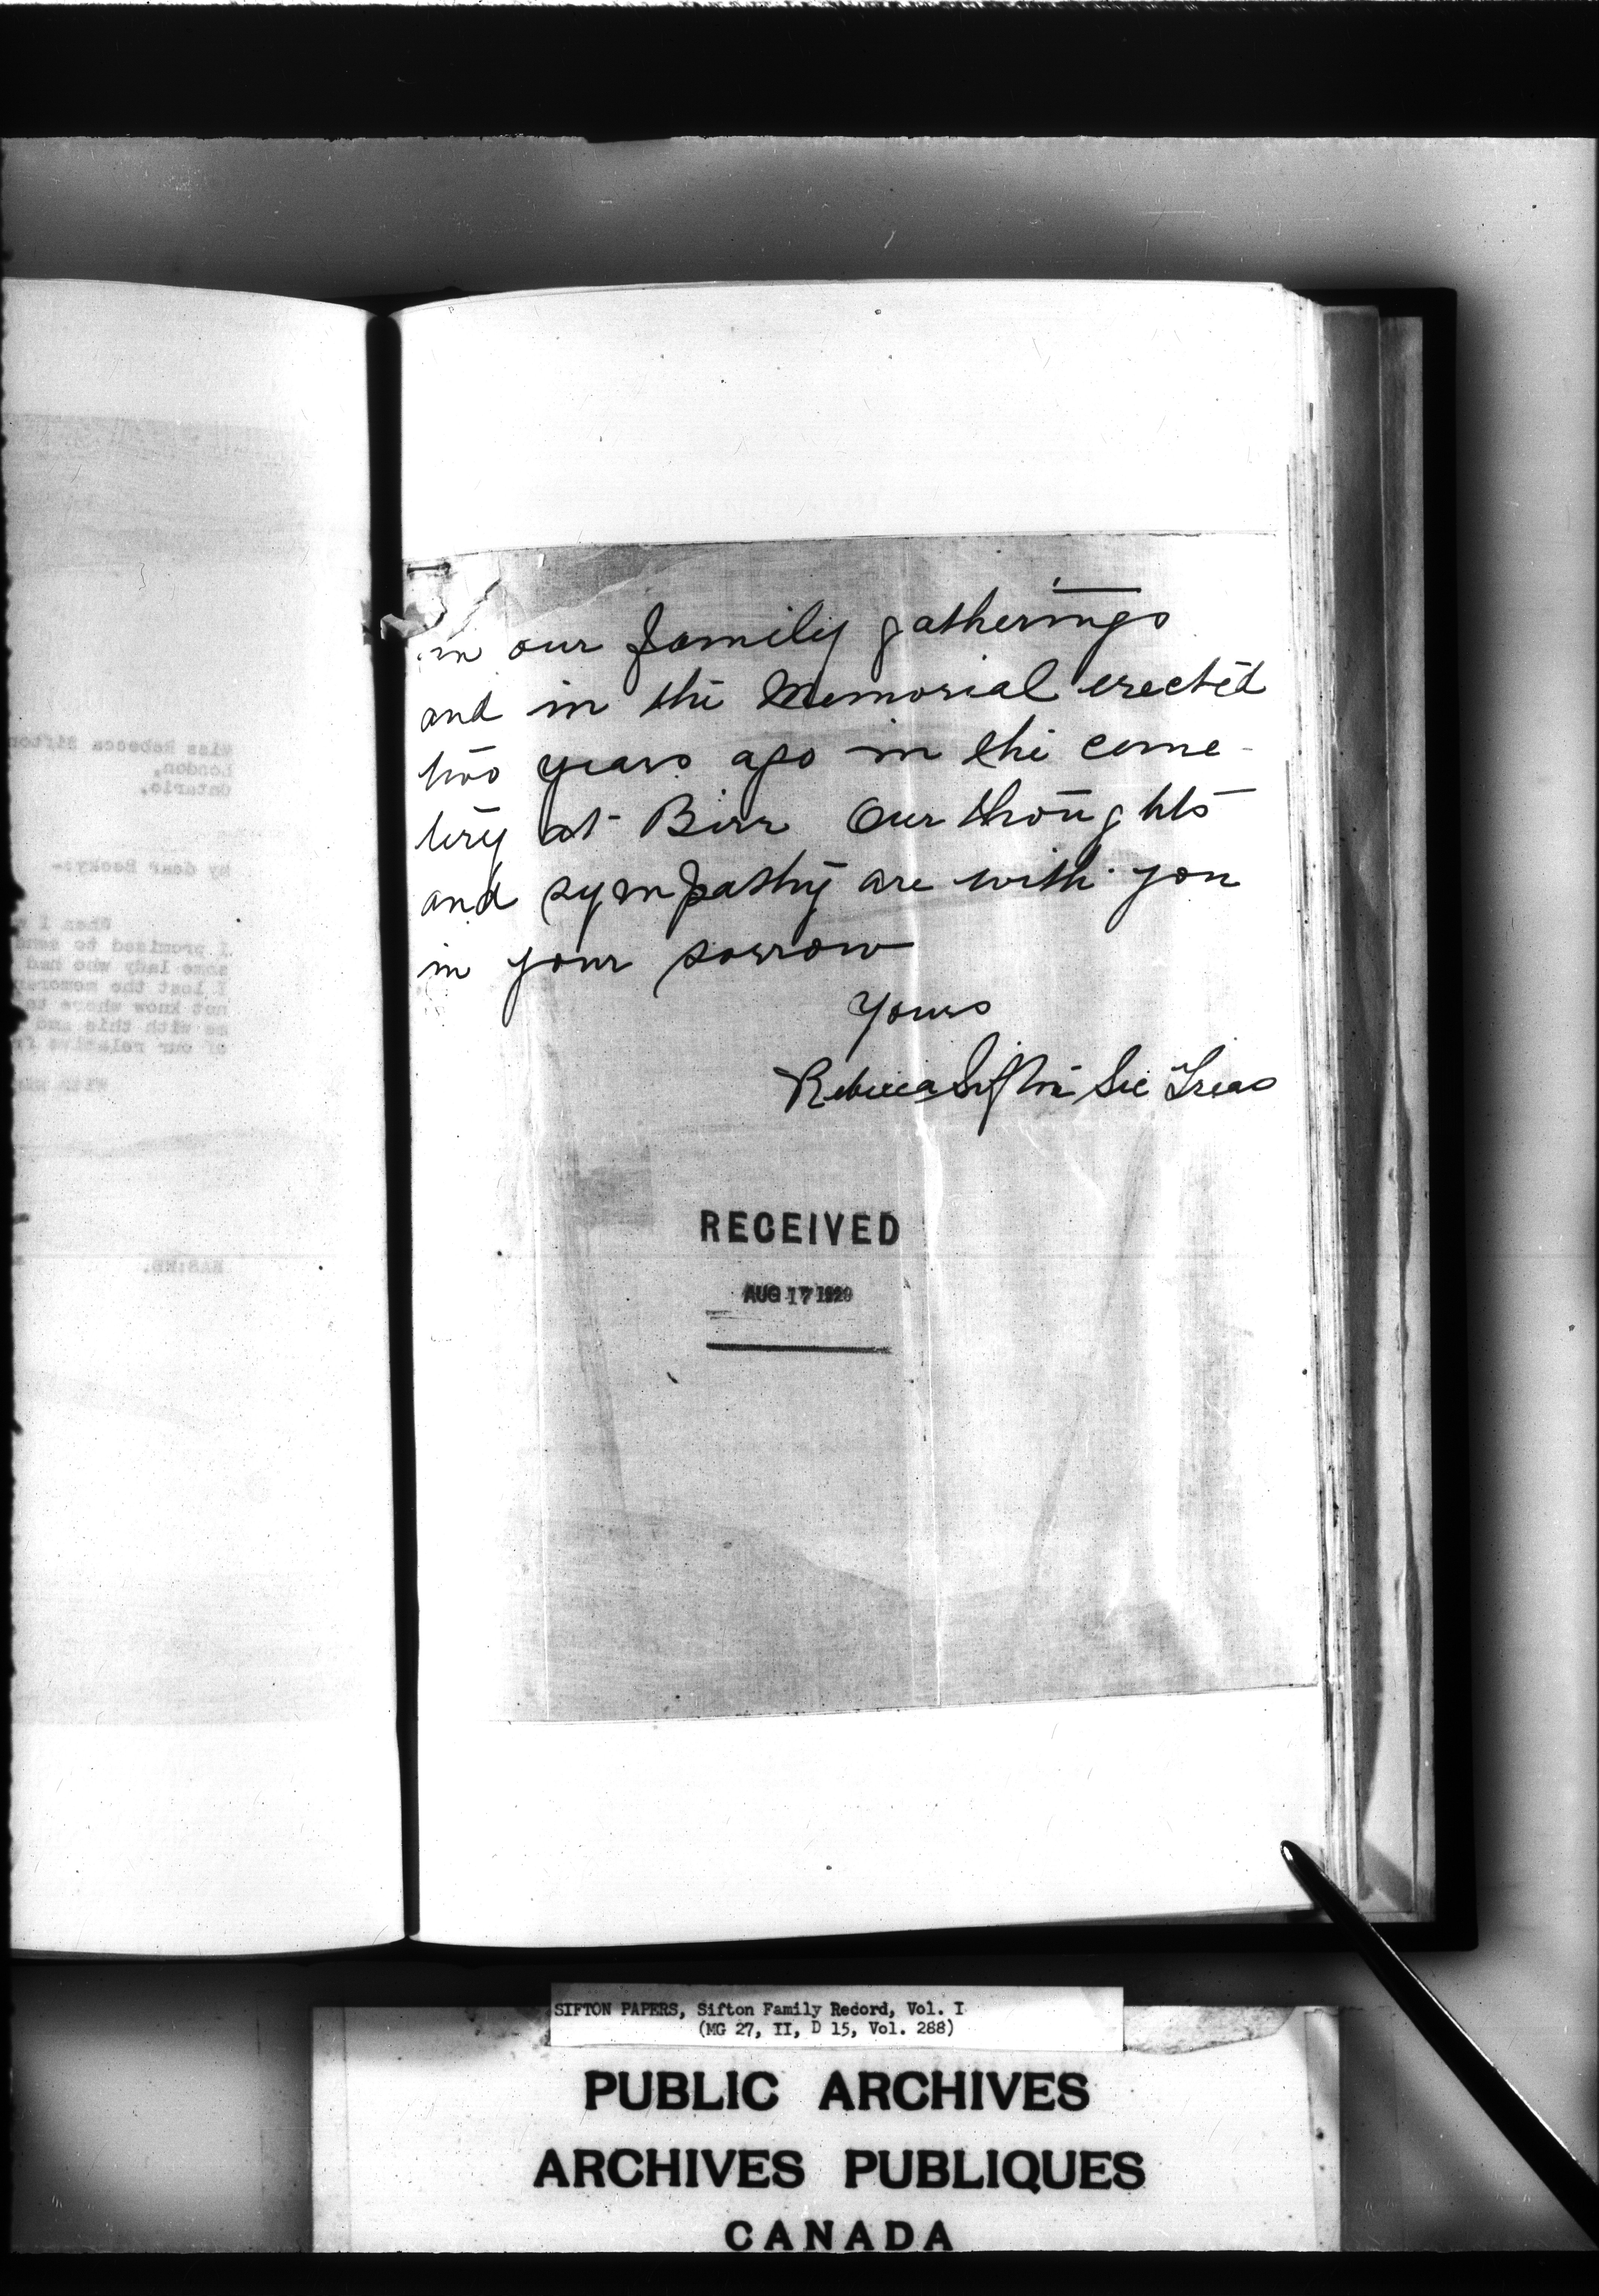 in our family gatherings
and in the Memorial erected
two years ago in the ceme-
tery at Birr Our thoughts
and sympathy are with you
in your sorrow
Yours
Rebecca Sifton Sec Treas
RECEIVED
AUG 17 1929
Miss Rebecca Sifton
London,
Ontario.
My dear Becky:-
When I
I promised to send
some lady who had
I lost the
not know where to
me with this and
of our relative
With
SIFTON PAPERS, Sifton Family Record, Vol. I
(MG 27, II, D 15, Vol. 288)
PUBLIC ARCHIVES
ARCHIVES PUBLIQUES
CANADA